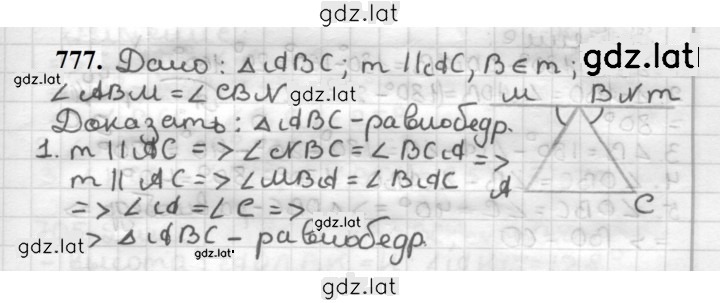 gdz.lat
777. Дано: △ABC; m || AC, B ∈ m; gdz.lat
∠ABM = ∠CBN gdz.lat M B N m
Доказать: △ABC - равнобедр.
1. m || AC => ∠NBC = ∠BCA =>
m || AC => ∠MBA = ∠BAC A
=> ∠A = ∠C => gdz.lat C
gdz.lat > △ABC - равнобедр.
gdz.lat
gdz.lat